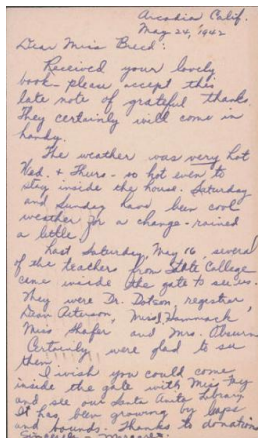 Arcadia, Calif.
May 24, 1942
Dear Miss Breed:
Received your lovely
book - please accept this
late note of grateful thanks.
They certainly will come in
handy.
The weather was very hot
Wed. + Thurs. - so hot even to
stay inside the house. Saturday
and Sunday have been cool
weather for a change - rained
a little.
Last Saturday, May 16, several
of the teachers from State College
came inside the gate to see us.
They were Dr. Dotson, registrar,
Dean Peterson, Miss Hammack,
Miss Shafer and Mrs.
Certainly were glad to see
them.
I wish you could come
inside the gate with Miss
and see our Santa Anita Library.
It has been growing by leaps
and bounds. Thanks to donations
Sincerely, Margaret